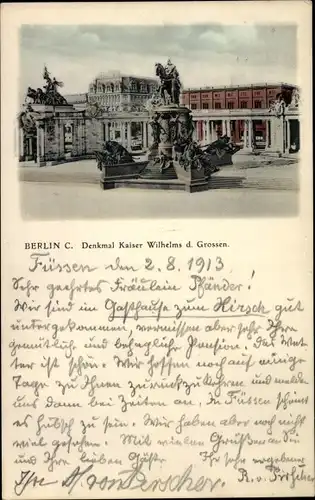 BERLIN C. Denkmal Kaiser Wilhelms d. Grossen.
Füssen den 2. 8. 1913
Sehr geehrtes Fräulein Pfänder!
Wir sind im Gasthause zum Hirsch gut
untergekommen, vermissen aber sehr Ihre
gemütlich und behagliche Pension. Das Wet
ter ist schön. Wir hoffen noch auf einige
Tage zu Ihnen zurückzukehren und melden
uns dann bei Zeiten an. In Füssen scheint
es hübsch zu sein. Wir haben aber noch nicht
viel gesehen. Mit vielen Grüßen an Sie
und Ihre lieben Gäste Ihr sehr ergebener